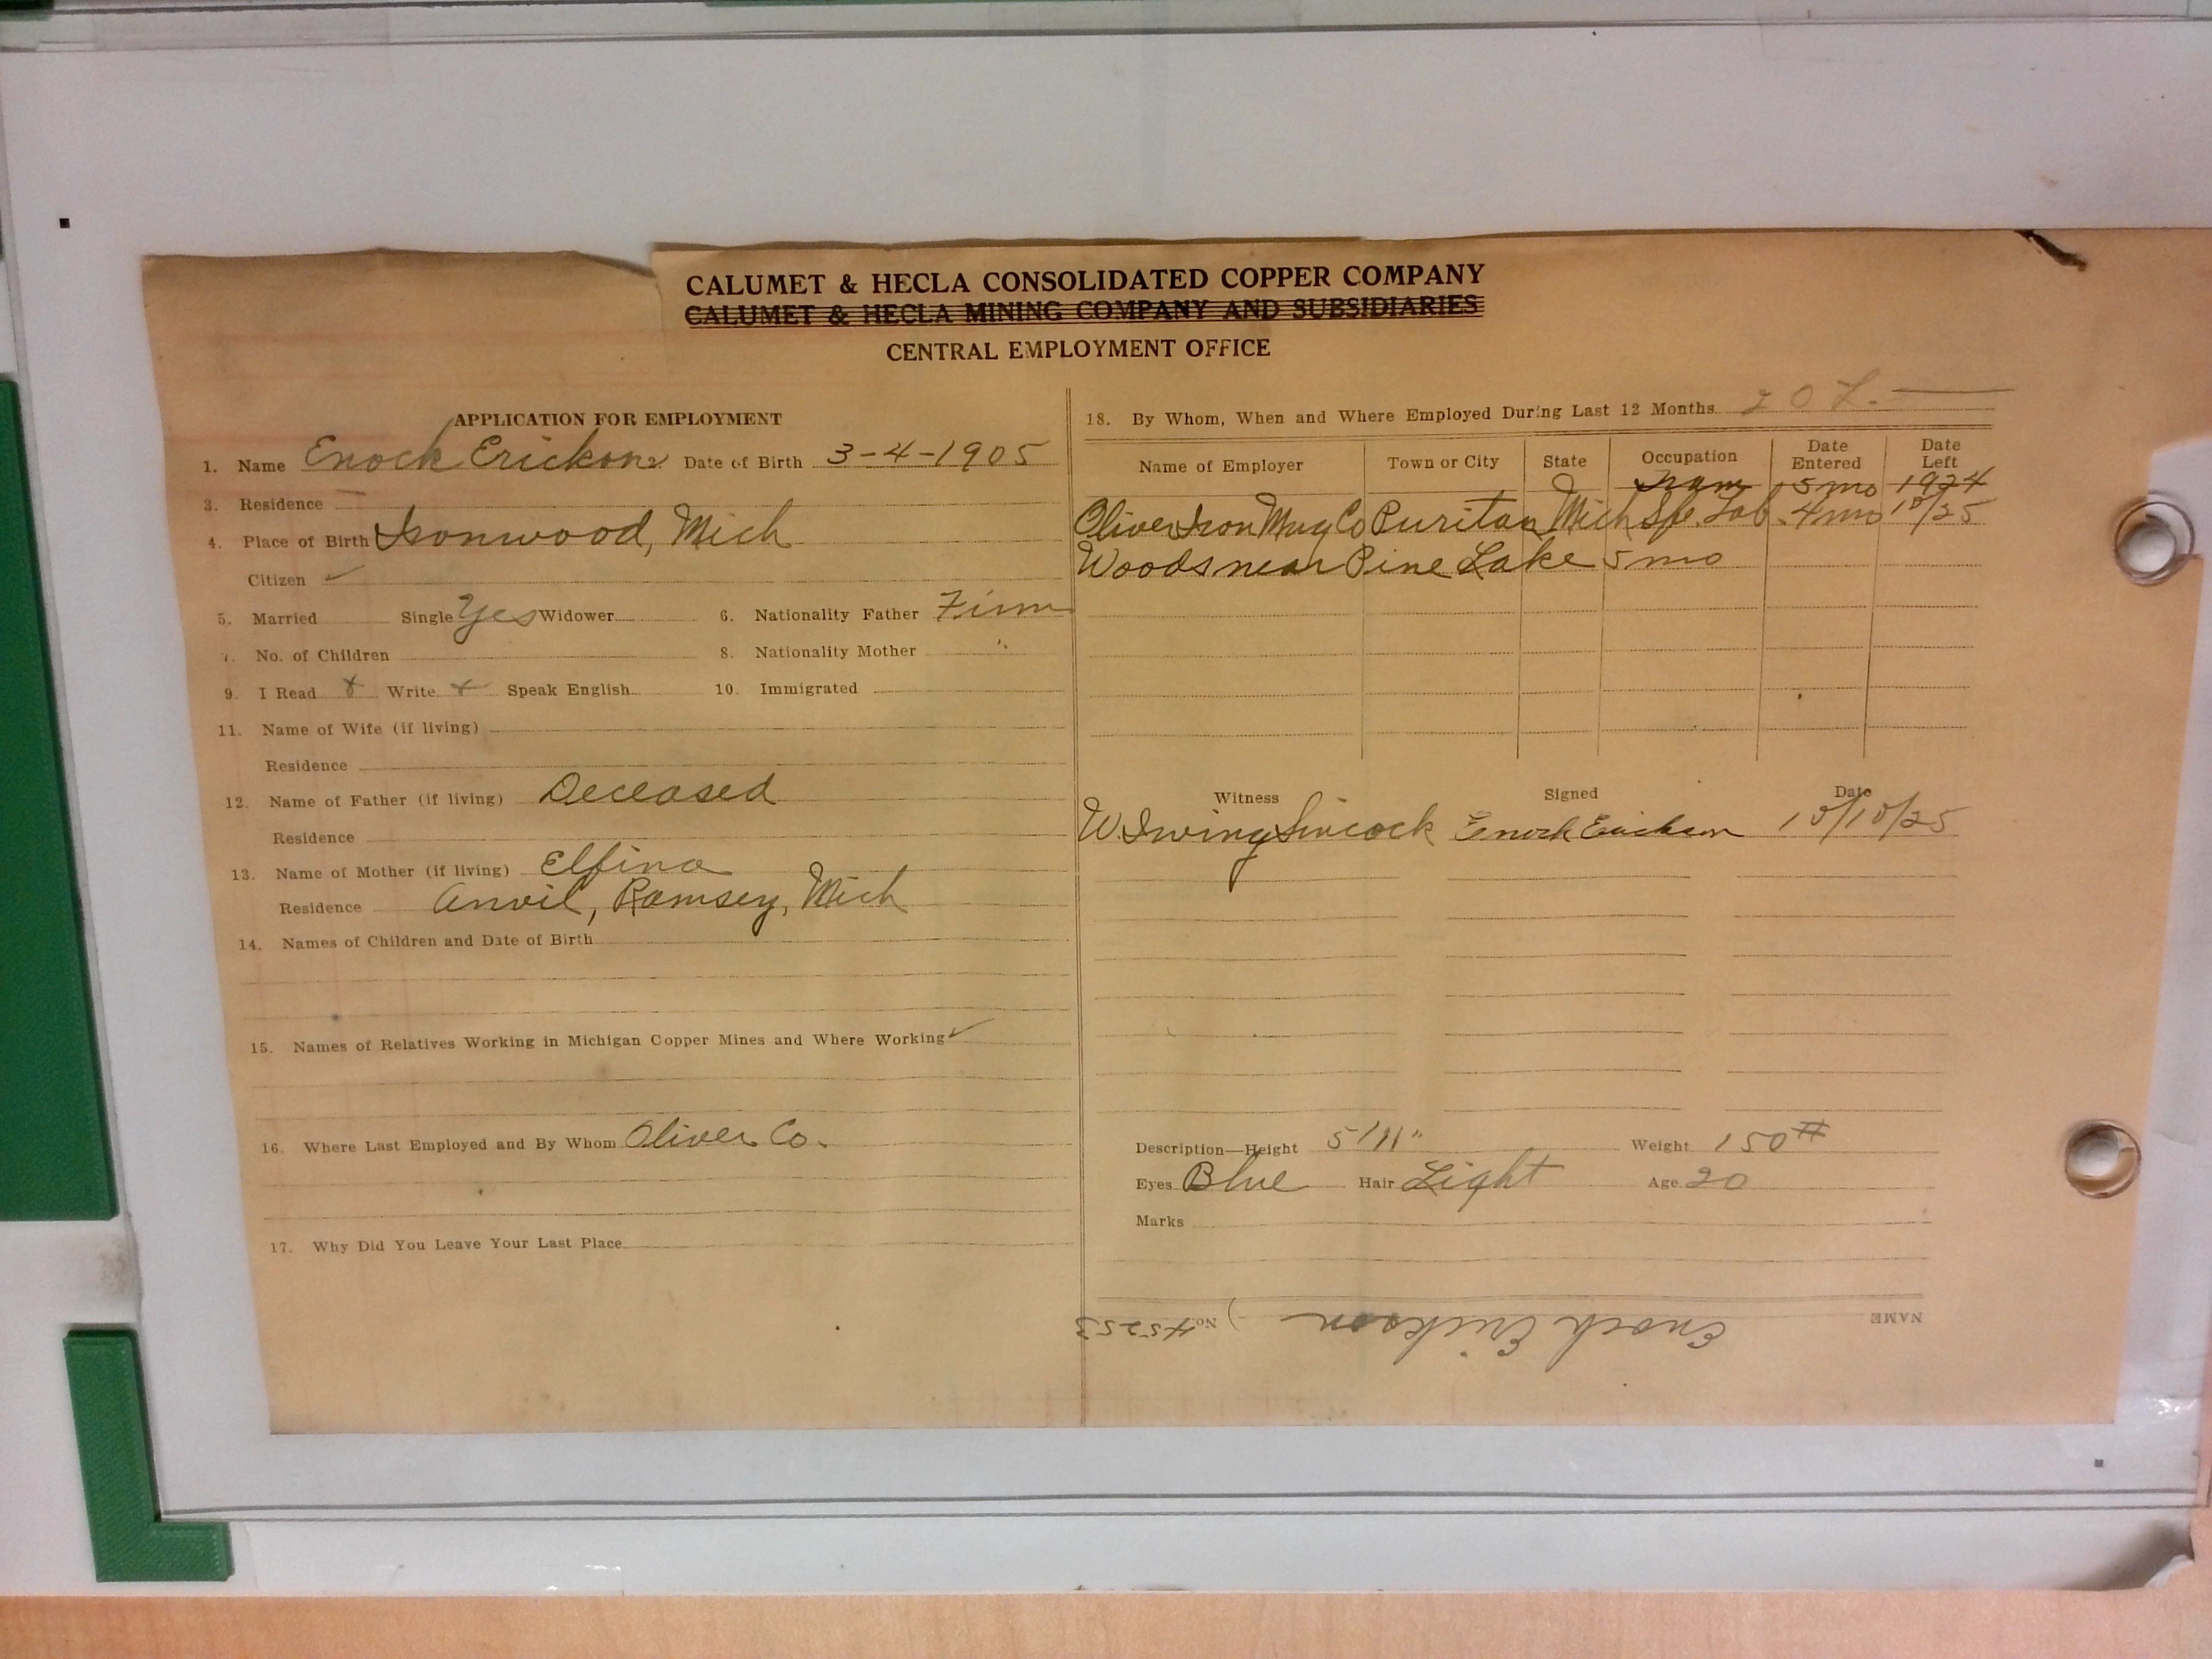 CALUMET & HECLA CONSOLIDATED COPPER COMPANY
CALUMET & HECLA MINING COMPANY AND SUBSIDIARIES
CENTRAL EMPLOYMENT OFFICE
APPLICATION FOR EMPLOYMENT
1. Name Enock Erickon 2. Date of Birth 3-4-1905
3. Residence
4. Place of Birth Ironwood, Mich
Citizen ✓
5. Married Single Yes Widower 6. Nationality Father Finn
7. No. of Children 8. Nationality Mother "
9. I Read x Write x Speak English 10. Immigrated
11. Name of Wife (if living)
Residence
12. Name of Father (if living) Deceased
Residence
13. Name of Mother (if living) Elfina
Residence Anvil, Ramsey, Mich
14. Names of Children and Date of Birth
15. Names of Relatives Working in Michigan Copper Mines and Where Working ✓
16. Where Last Employed and By Whom Oliver Co.
17. Why Did You Leave Your Last Place
18. By Whom, When and Where Employed During Last 12 Months
Name of Employer Town or City State Occupation Date Entered Date Left
Tram 5 mo 1924
Oliver Iron Mng Co Puritan Mich Spe. Lab. 4 mo 10/25
Woods near Pine Lake 5 mo
Witness Signed Date
W Irving Sincock Enock Erickson 10/10/25
Description—Height 5'11" Weight 150#
Eyes Blue Hair Light Age 20
Marks
NAME Enoch Erickson No. 45253